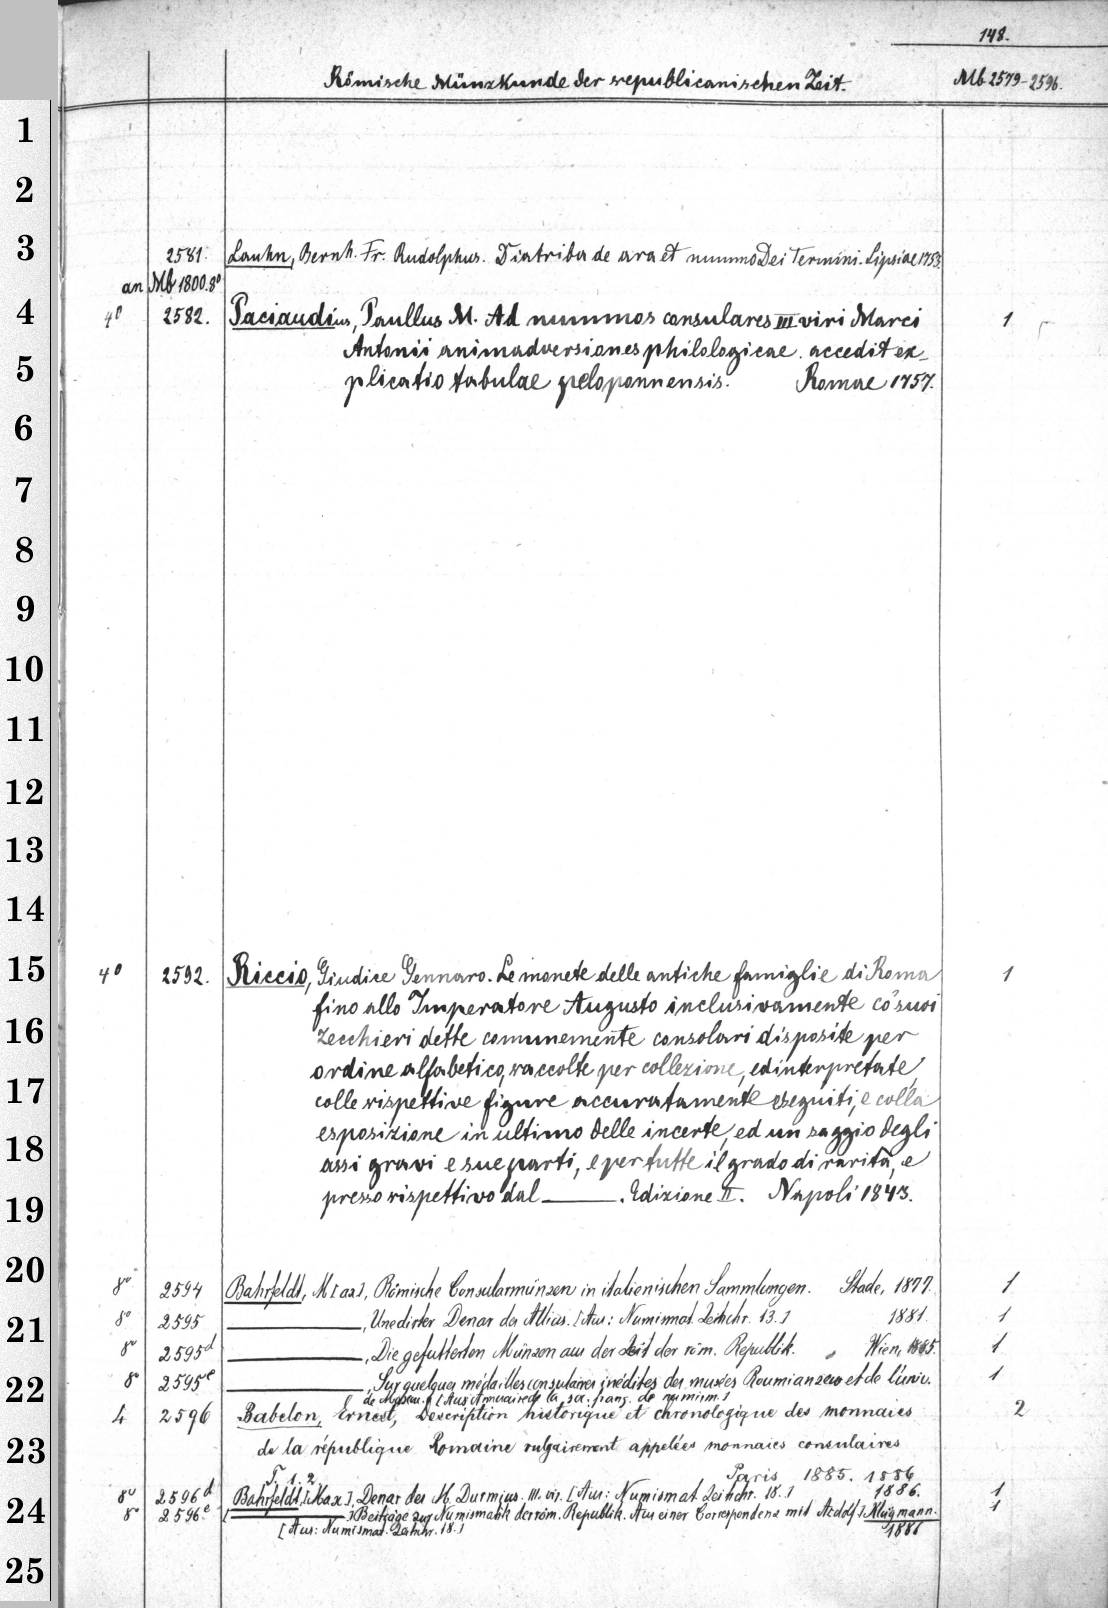 148.
Römische Münzkunde der republicanischen Zeit. Mb 2579-2596.
1
2
3
2581. Lauhn, Bernh. Fr. Rudolphus. Diatriba de ara et nummo Dei Termini. Lipsiae 1753.
an Mb 1800.8°
4
4° 2582. Paciaudius, Paullus M. Ad nummos consulares III viri Marci 1
Antonii animadversiones philologicae. accedit ex-
5
plicatio tabulae peloponnensis. Romae 1757.
6
7
8
9
10
11
12
13
14
15
4° 2592. Riccio, Giudice Gennaro. Le monete delle antiche famiglie di Roma 1
fino allo Imperatore Augusto inclusivamente co' suoi
16
zecchieri dette comunemente consolari disposite per
ordine alfabetico, raccolte per collezione, ed interpretate
17
colle rispettive figure accuratamente eseguiti, e colla
esposizione in ultimo delle incerte, ed un saggio degli
18
assi gravi e sue parti, e per tutte il grado di rarità, e
presso rispettivo dal ——. Edizione II. Napoli 1843.
19
20
8° 2594 Bahrfeldt, M[ax], Römische Consularmünzen in italienischen Sammlungen. Stade, 1877. 1
21
8° 2595 ——, Unedirter Denar des Allius. [Aus: Numismat. Zeitschr. 13.] 1881. 1
8° 2595d ——, Die gefutterten Münzen aus der Zeit der röm. Republik. Wien, 1885. 1
22
8° 2595e ——, Sur quelques médailles consulaires inédites des musées Roumianzew et de l'univ. 1
de Moscou. [Aus Annuaire de la soc. franç. de numism.]
4 2596 Babelon, Ernest, Description historique et chronologique des monnaies 2
23
de la république Romaine vulgairement appelées monnaies consulaires
T. 1. 2 Paris 1885. 1886
24
8° 2596d Bahrfeldt, [Max], Denar des M. Durmius. III. vir. [Aus: Numismat. Zeitschr. 18.] 1886. 1
8° 2596e [——] Beiträge zur Numismatik der röm. Republik. Aus einer Correspondenz mit A[dolf] Klügmann. 1
[Aus: Numismat. Zeitschr. 18.] 1886
25